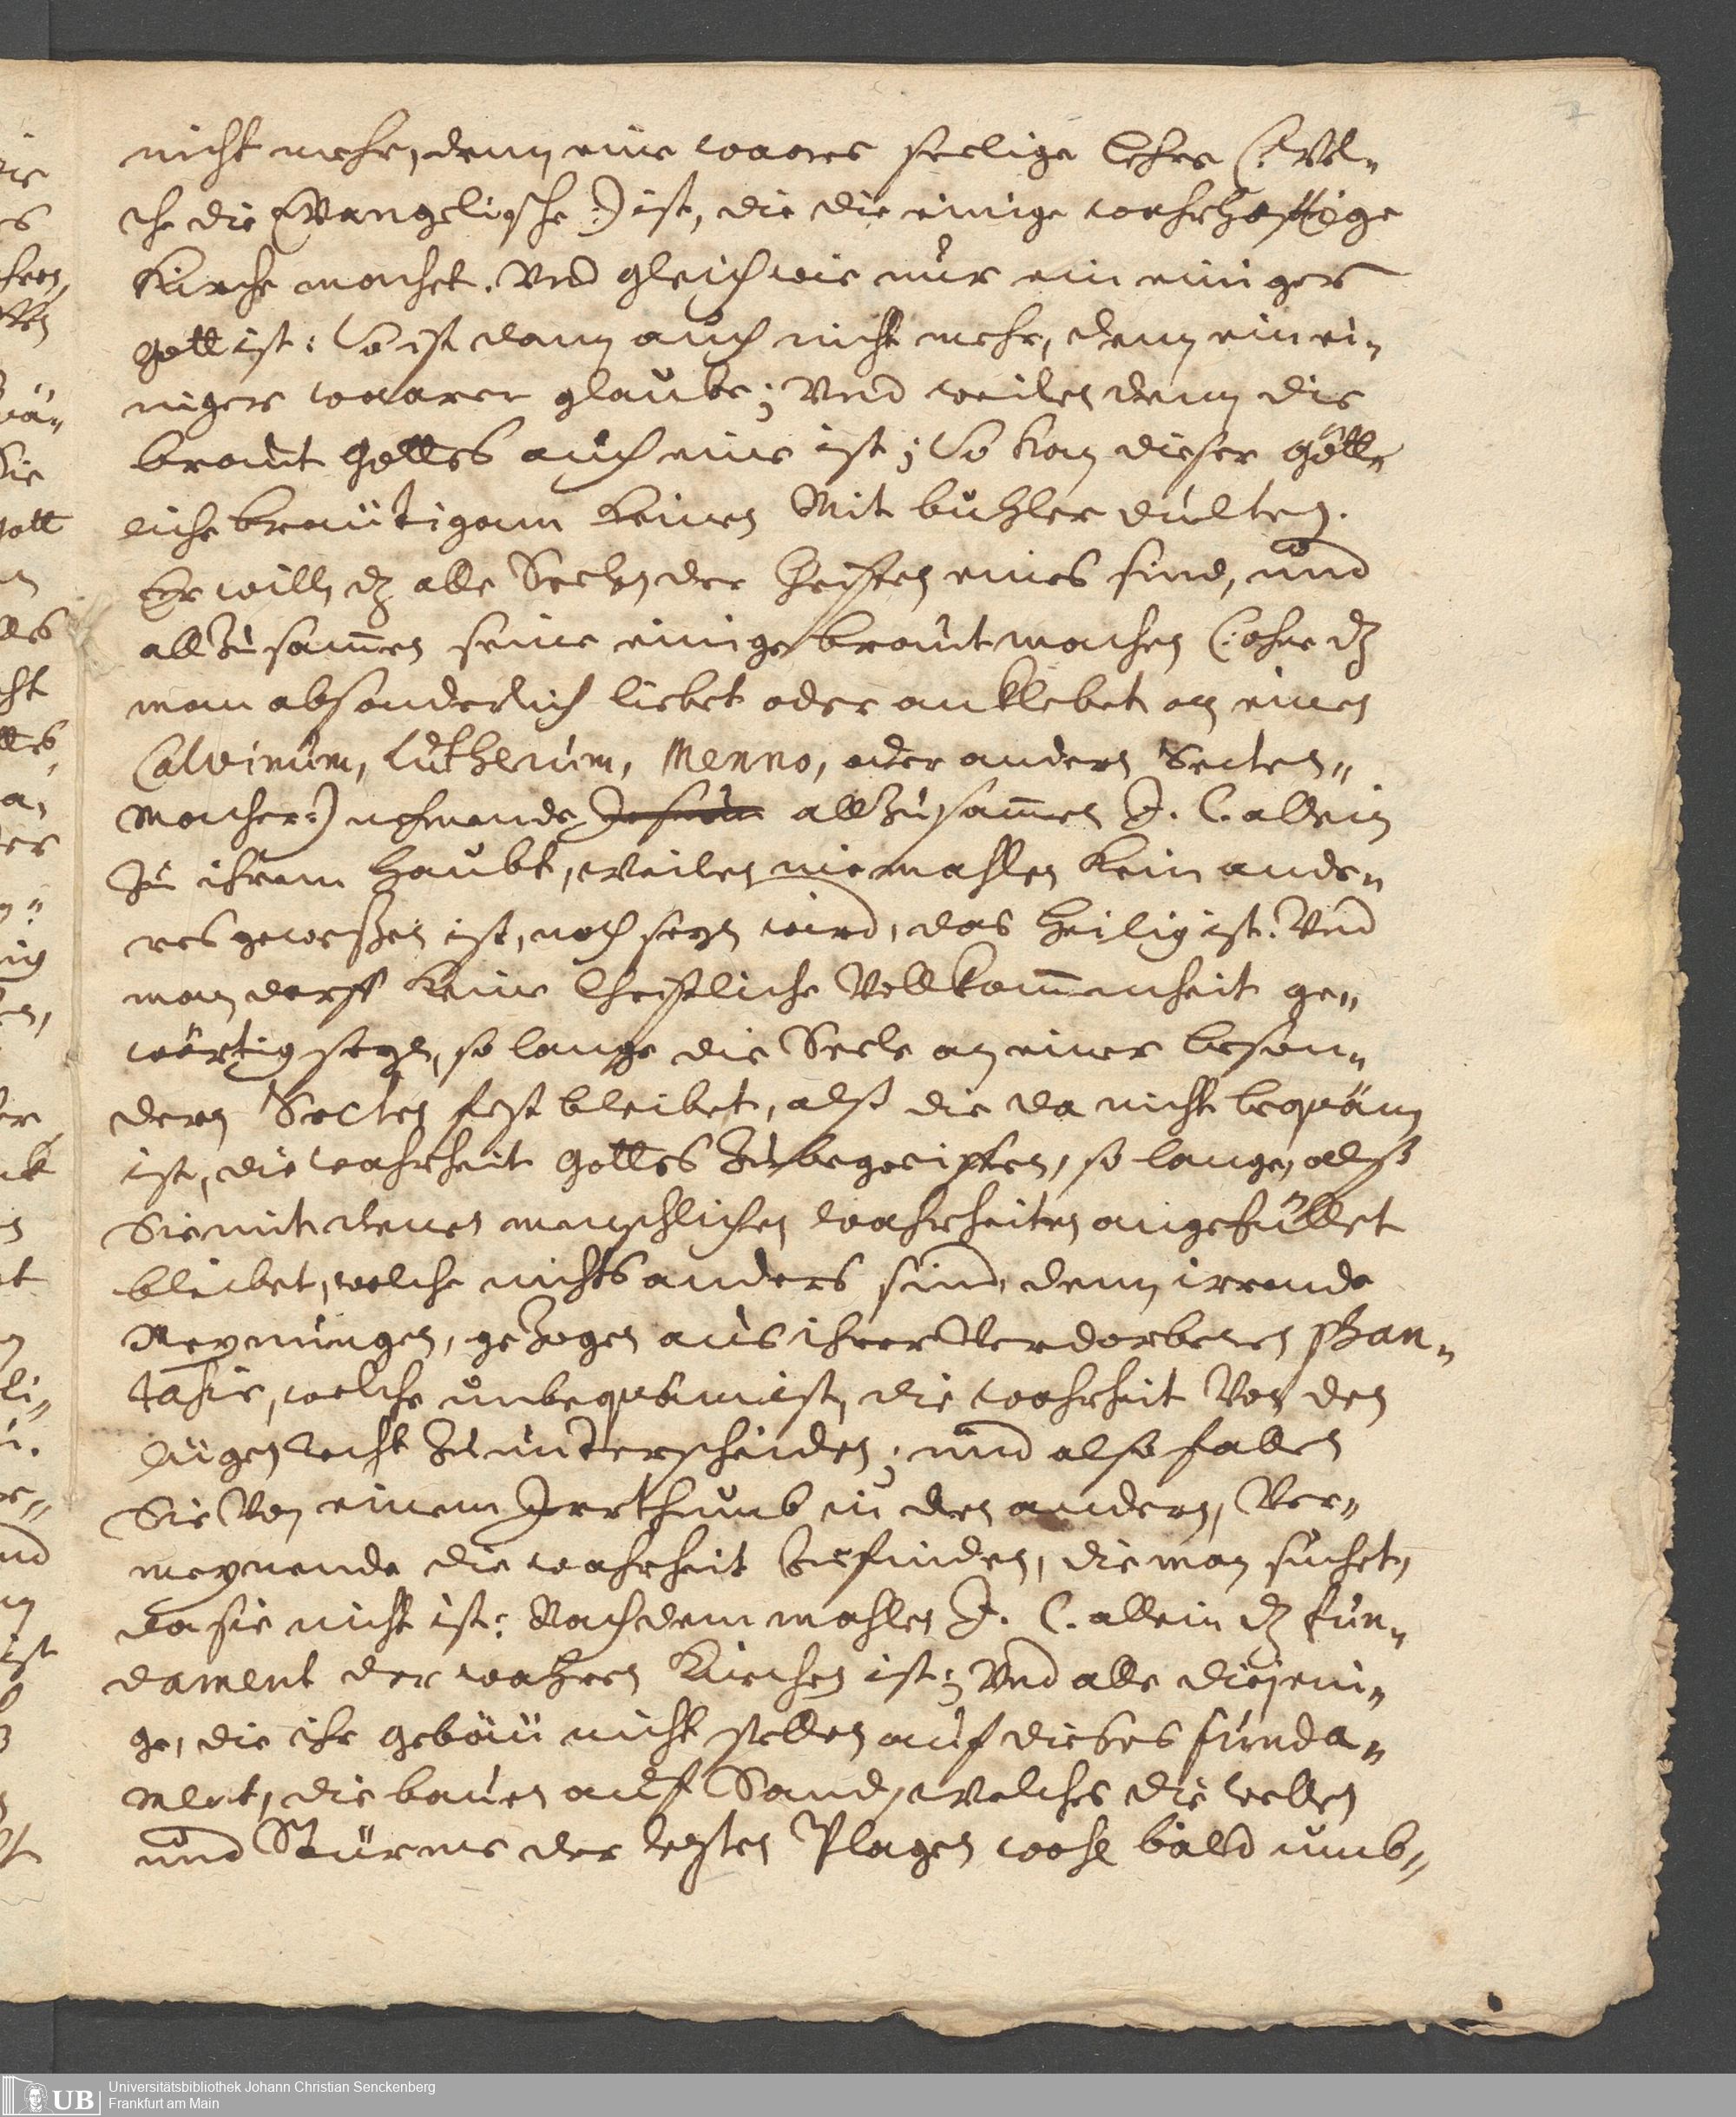 nicht mehr, denn eine waare seelige Lehre (: Wel-
che die Evangelische :) ist, die die einige wahrhafftige
Kirche machet. Vnd gleich wie nur ein einiger
Gott ist: So ist dann auch nicht mehr, denn ein ei-
niger waarer glaube; Vnd weilen denn die
braut Gottes auch eine ist; So kan dieser Gött-
liche bräutigam keinen Mit buhler dulten.
Er will, dz alle Seelen der Christen eines sind, und
allzusam̄en seine einige braut machen (: ohne dz
man absonderlich liebet oder anklebet an einen
Calvinum, Lutherum, Menno, oder andern Secten-
Macher :) nehmende Jesum allzusam̄en J. C. allein
Zu ihrem Haubt, weilen niemahlen kein ande-
res geweßen ist, noch seyn wird, das Heilig ist. Vnd
man darff keine Christliche Vollkom̄enheit ge-
wärtig seyn, so lange die Seele an einer beson-
dern Secten fest bleibet, alß die da nicht bequäm
ist, die wahrheit Gottes zu begreiffen, so lange, alß
Sie mit denen menschlichen wahrheiten angefüllet
bleibet, welche nichts anders sind, denn irrende
Meynungen, gezogen aus ihrer Verdorbenen Phan-
tasie, welche unbequäm ist, die wahrheit Von den
lügen recht zu unterscheiden; und also fallen
Sie Von einem Irrthumb in den andern, Ver-
meynende die wahrheit zu finden, die man suchet,
da sie nicht ist: Nachdem mahlen J. C. allein dz fun-
dament der wahren Kirchen ist; Vnd alle diejeni-
ge, die ihr gebäu nicht stellen auf dieses funda-
ment, die bauen auf Sand, welches die wellen
und Stürme der letzten Plagen wohl bald umb-
Universitätsbibliothek Johann Christian Senckenberg
Frankfurt am Main
UB